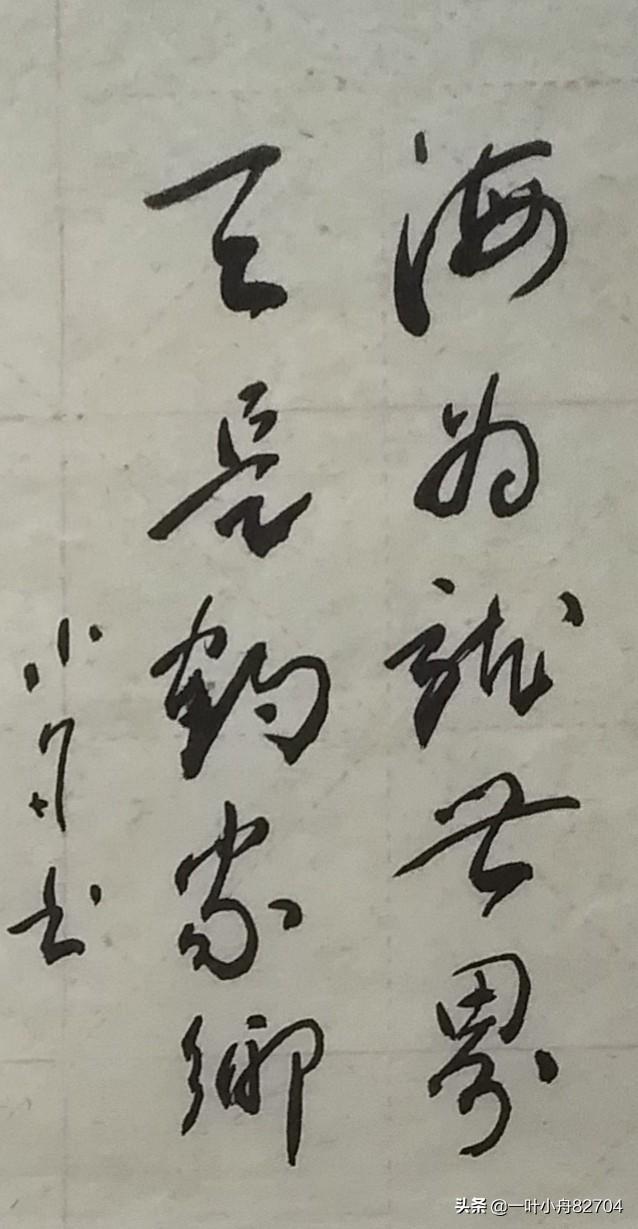 海为龙世界
天是鹤家乡
小舟书
头条 @一叶小舟82704